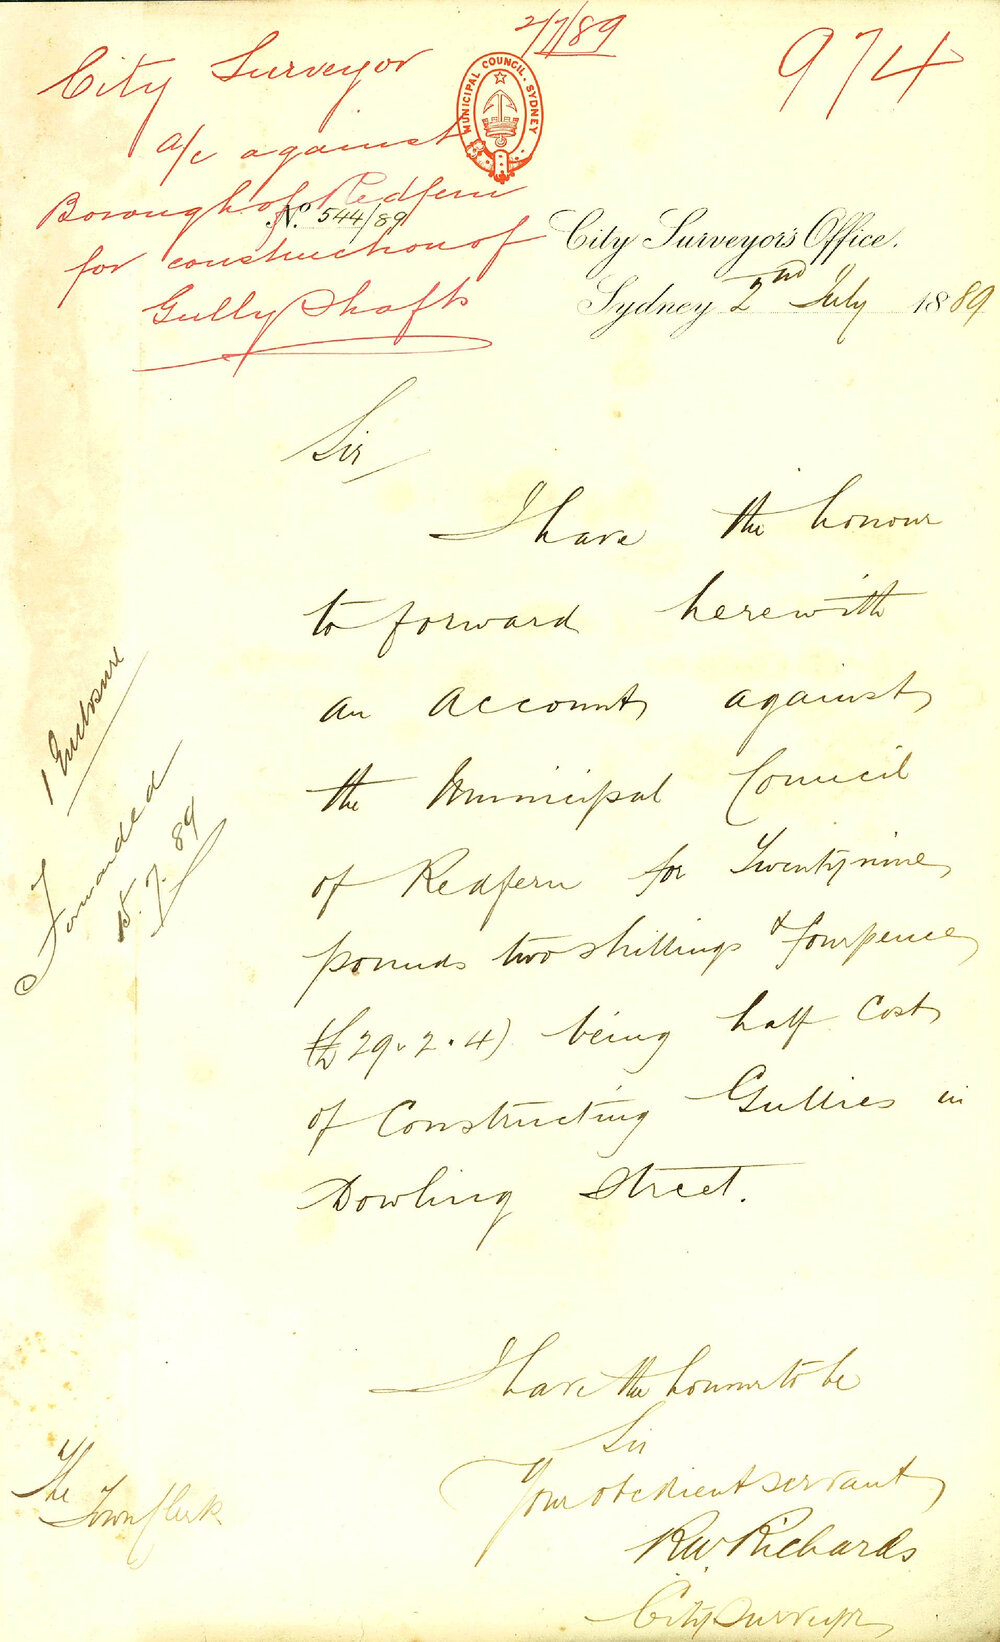 2/7/89
974
City Surveyor
a/c against
Borough of Redfern
for construction of
Gully Shafts
MUNICIPAL COUNCIL. SYDNEY
No. 544/89
City Surveyor's Office.
Sydney 2nd July 1889
Sir
I have the honour
to forward herewith
an account against
the Municipal Council
of Redfern for Twentynine
pounds two shillings & fourpence
(£29.2.4) being half cost
of Constructing Gullies in
Dowling Street.
1 Enclosure
Forwarded
15.7.89
I have the honour to be
Sir
Your obedient servant
R.W. Richards
City Surveyor
The
Town Clerk